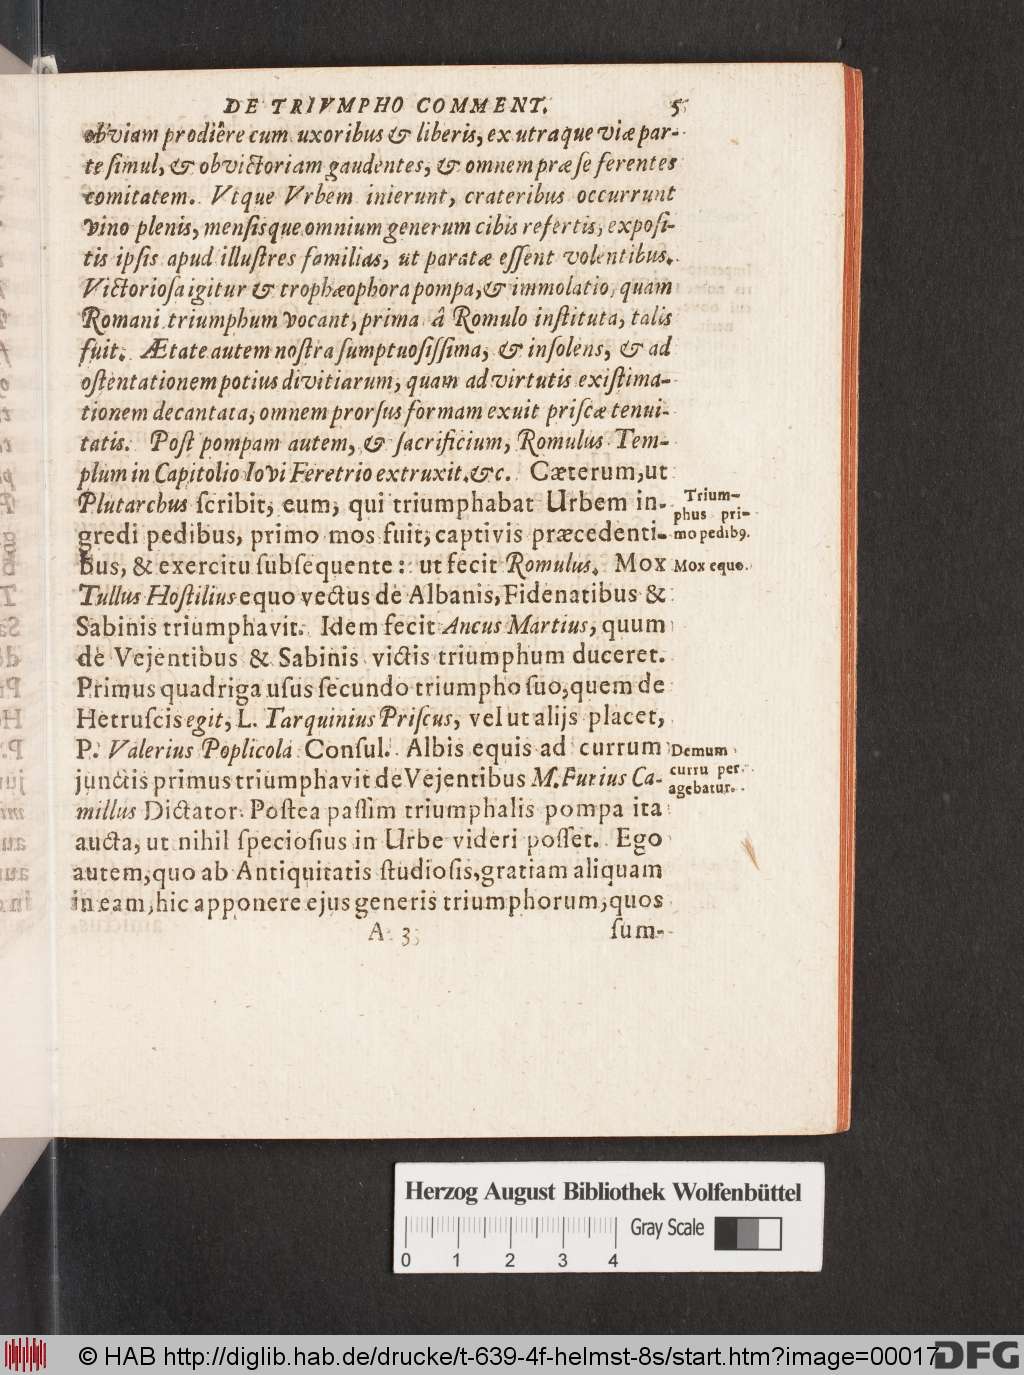 DE TRIVMPHO COMMENT. 5
obviam prodiêre cum uxoribus & liberis, ex utraque viæ par-
te simul, & ob victoriam gaudentes, & omnem præ se ferentes
comitatem. Vtque Vrbem inierunt, crateribus occurrunt
vino plenis, mensisque omnium generum cibis refertis, exposi-
tis ipsis apud illustres familias, ut paratæ essent volentibus.
Victoriosa igitur & trophæophora pompa, & immolatio, quam
Romani triumphum vocant, prima â Romulo instituta, talis
fuit. Ætate autem nostra sumptuosissima, & insolens, & ad
ostentationem potius divitiarum, quam ad virtutis existima-
tionem decantata, omnem prorsus formam exuit priscæ tenui-
tatis. Post pompam autem, & sacrificium, Romulus Tem-
plum in Capitolio Iovi Feretrio extruxit. &c. Cæterum, ut
Plutarchus scribit, eum, qui triumphabat Urbem in-
gredi pedibus, primo mos fuit, captivis præcedenti-
bus, & exercitu subsequente: ut fecit Romulus. Mox
Tullus Hostilius equo vectus de Albanis, Fidenatibus &
Sabinis triumphavit. Idem fecit Ancus Martius, quum
de Vejentibus & Sabinis victis triumphum duceret.
Primus quadriga usus secundo triumpho suo, quem de
Hetruscis egit, L. Tarquinius Priscus, vel ut alijs placet,
P. Valerius Poplicola Consul. Albis equis ad currum
junctis primus triumphavit de Vejentibus M. Furius Ca-
millus Dictator. Postea passim triumphalis pompa ita
aucta, ut nihil speciosius in Urbe videri posset. Ego
autem, quo ab Antiquitatis studiosis, gratiam aliquam
in eam, hic apponere ejus generis triumphorum, quos
A 3 sum-
Trium-
phus pri-
mo pedibꝰ.
Mox equo.
Demum
curru per-
agebatur.
Herzog August Bibliothek Wolfenbüttel
Gray Scale
0 1 2 3 4
© HAB http://diglib.hab.de/drucke/t-639-4f-helmst-8s/start.htm?image=00017
DFG